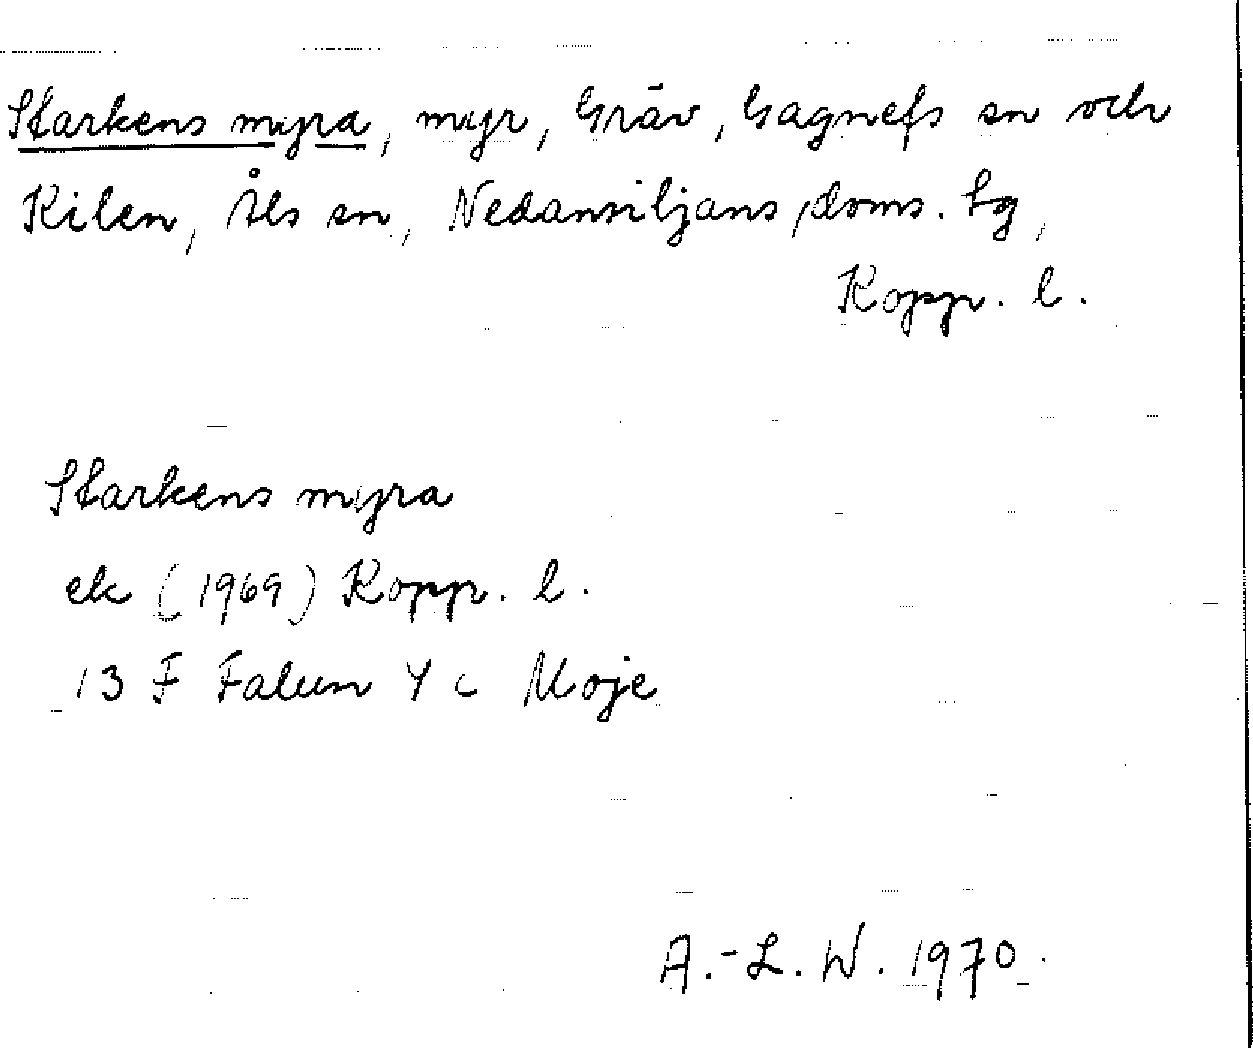 Starkens myra, myr, Gräv, Gagnefs sn och
Kilen, Åls sn, Nedansiljans doms. tg,
Kopp. l.
Starkens myra
ek (1969) Kopp. l.
13 F Falun 4 c Moje
A.-L. W. 1970.